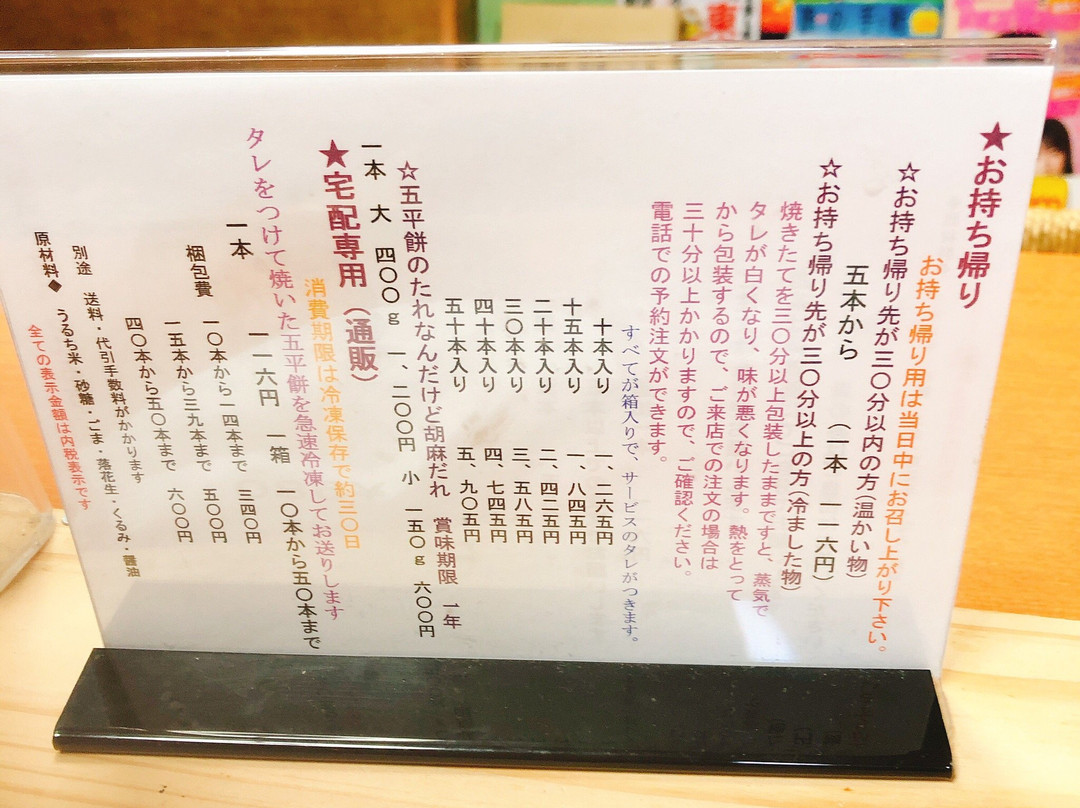 ★お持ち帰り
お持ち帰り用は当日中にお召し上がり下さい。
☆お持ち帰り先が三〇分以内の方(温かい物)
五本から (一本 一一六円)
☆お持ち帰り先が三〇分以上の方(冷ました物)
焼きたてを三〇分以上包装したままですと、蒸気で
タレが白くなり、味が悪くなります。熱をとって
から包装するので、ご来店での注文の場合は
三十分以上かかりますので、ご確認ください。
電話での予約注文ができます。
すべてが箱入りで、サービスのタレがつきます。
十本入り 一、二六五円
十五本入り 一、八四五円
二十本入り 二、四二五円
三〇本入り 三、五八五円
四十本入り 四、七四五円
五十本入り 五、九〇五円
☆五平餅のたれなんだけど胡麻だれ 賞味期限 一年
一本 大 四〇〇g 一、二〇〇円 小 一五〇g 六〇〇円
★宅配専用(通販)
消費期限は冷凍保存で約三〇日
タレをつけて焼いた五平餅を急速冷凍してお送りします
一本 一一六円 一箱 一〇本から五〇本まで
梱包費 一〇本から一四本まで 三四〇円
一五本から三九本まで 五〇〇円
四〇本から五〇本まで 六〇〇円
別途 送料・代引手数料がかかります
原材料◆ うるち米・砂糖・ごま・落花生・くるみ・醤油
全ての表示金額は内税表示です
東